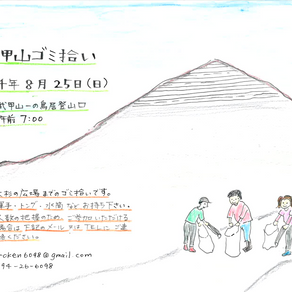 甲山ゴミ拾い
年8月25日(日)
武甲山一の鳥居登山口
午前 7:00
大杉の広場までのゴミ拾いです。
軍手・トング・水筒などお持ち下さい。
人数の把握のため、ご参加いただける
場合は下記のメール又はTELにご連
絡ください。
oken6098@gmail.com
94-26-6098